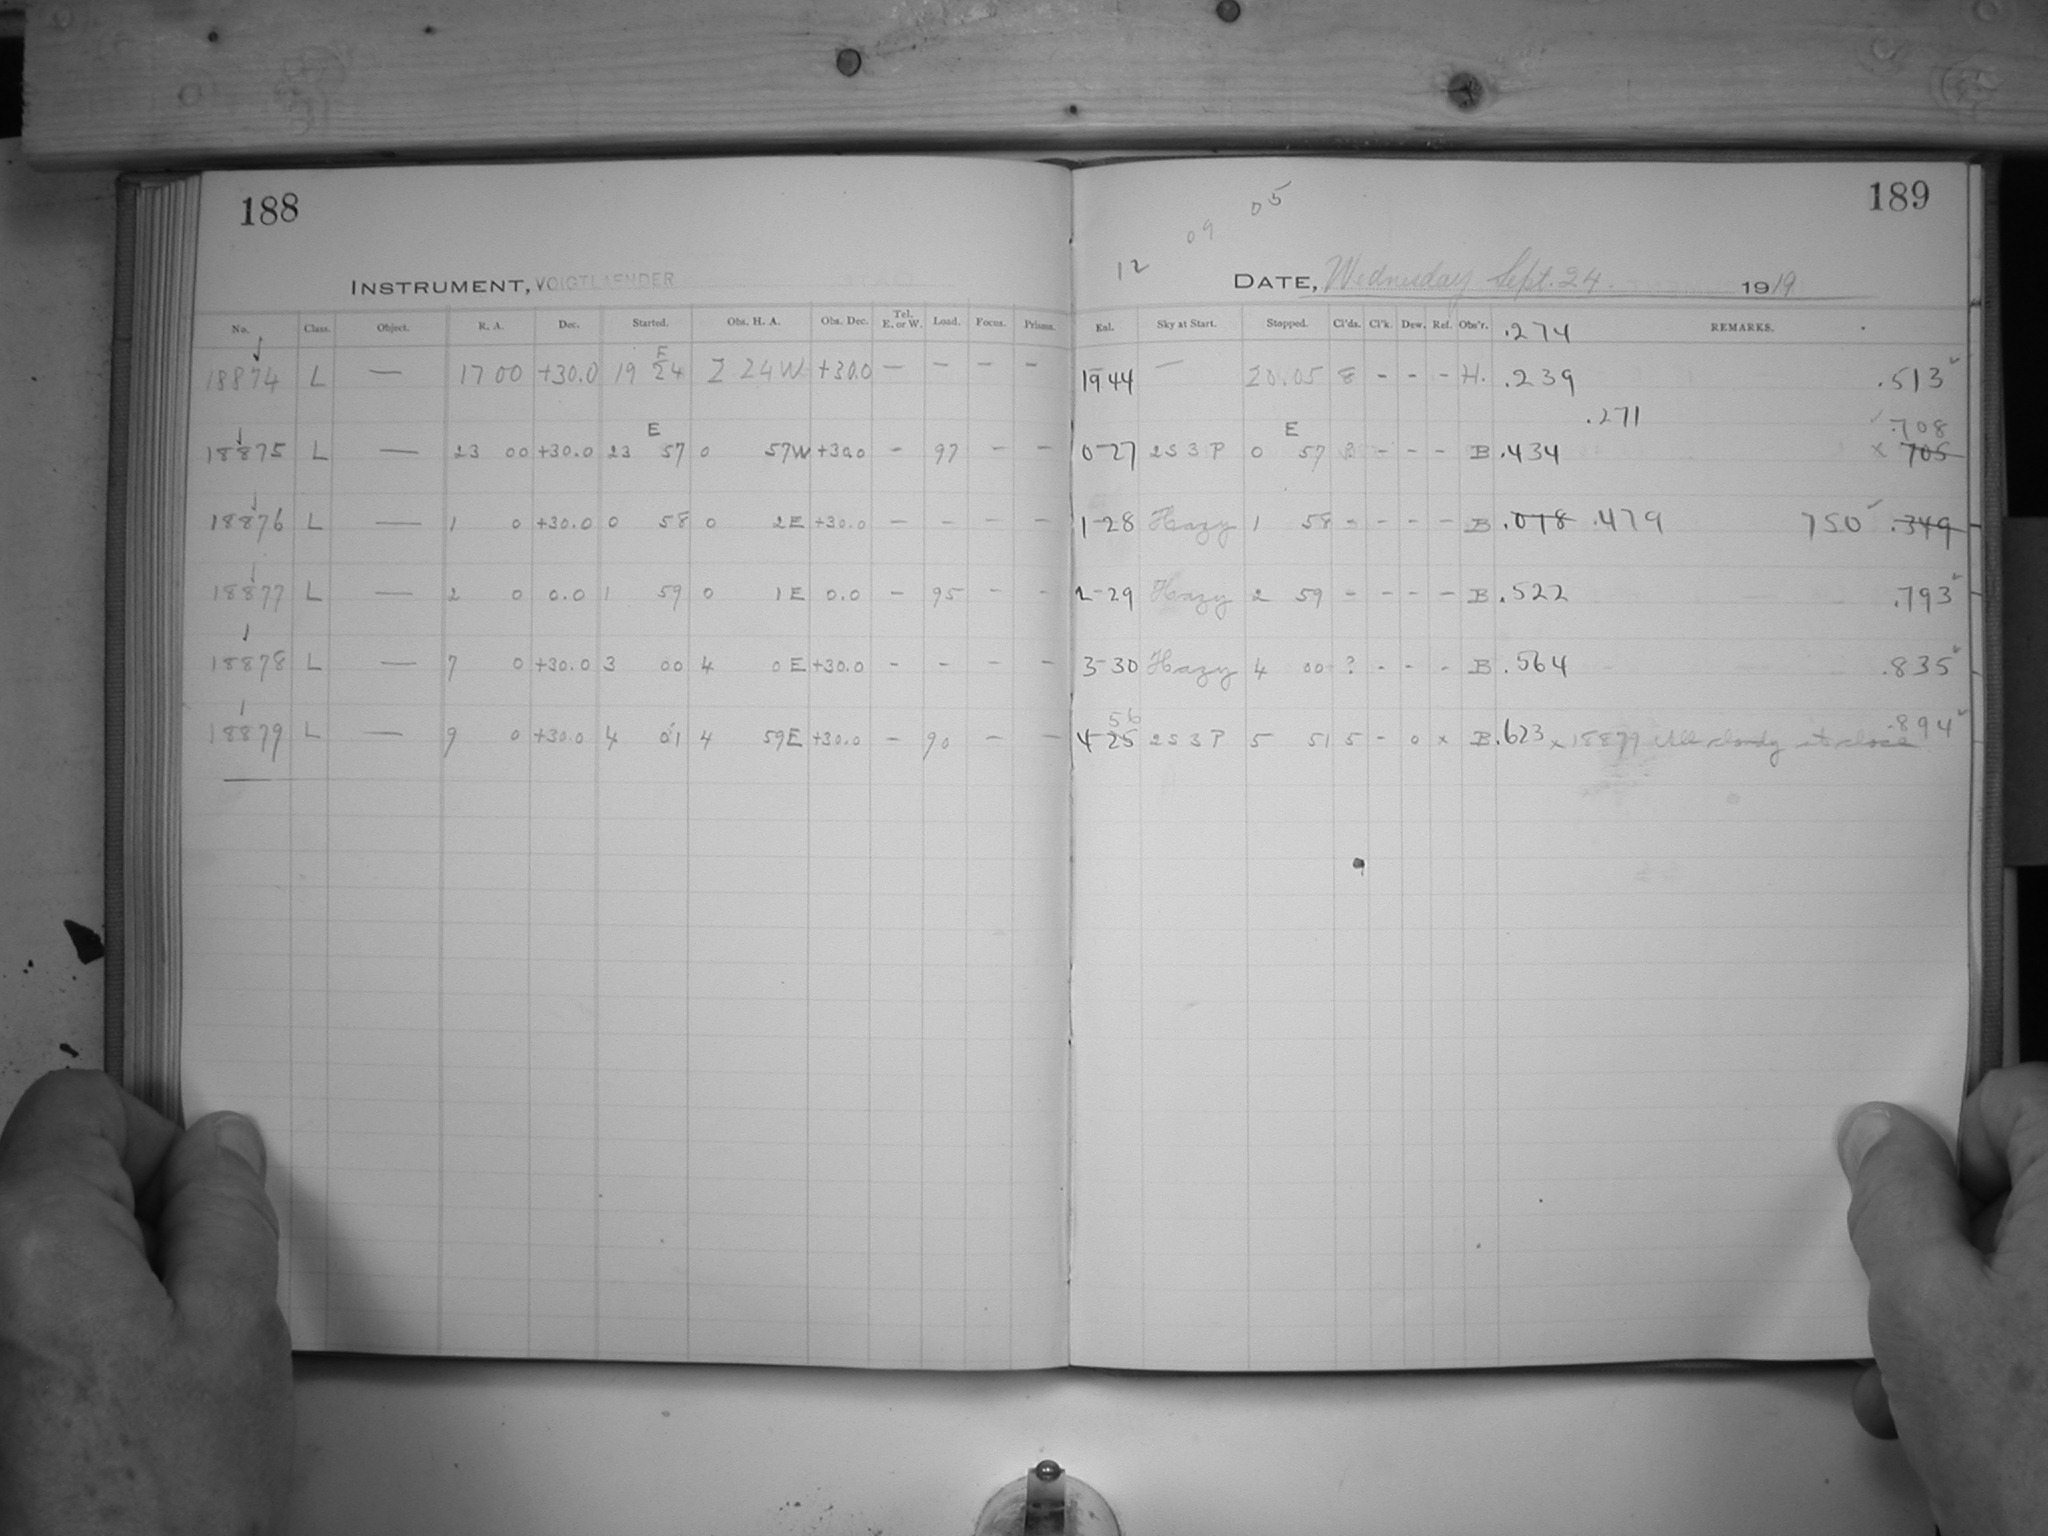 188
INSTRUMENT, VOIGTLAENDER
No. Class. Object. R. A. Dec. Started. Obs. H. A. Obs. Dec. Tel. E. or W. Load. Focus. Prisms.
18874 L — 17 00 +30.0 19 24 2 24W +30.0 — — — —
E
18875 L — 23 00 +30.0 23 57 0 57W +30.0 — 97 — —
18876 L — 1 0 +30.0 0 58 0 2E +30.0 — — — —
18877 L — 2 0 0.0 1 59 0 1E 0.0 — 95 — —
18878 L — 7 0 +30.0 3 00 4 0E +30.0 - - - -
18879 L — 9 0 +30.0 4 01 4 59E +30.0 — 90 — —
189
05
09
12
DATE, Wednesday Sept. 24. 1919
Exl. Sky at Start. Stopped. Cl'ds. Cl'k. Dew. Ref. Obs'r. .274 REMARKS.
19 44 — 20.05 8 - - - H. .239 .513
E .271 .708
0-27 2S3P 0 57 - - - B .434 x 705
1-28 Hazy 1 58 - - - - B .078 .479 750 .349
2-29 Hazy 2 59 - - - - B .522 .793
3-30 Hazy 4 00 ? - - - B .564 .835
56 .894
4-25 2S3P 5 51 5 - 0 x B .623 x 18879 All cloudy at close